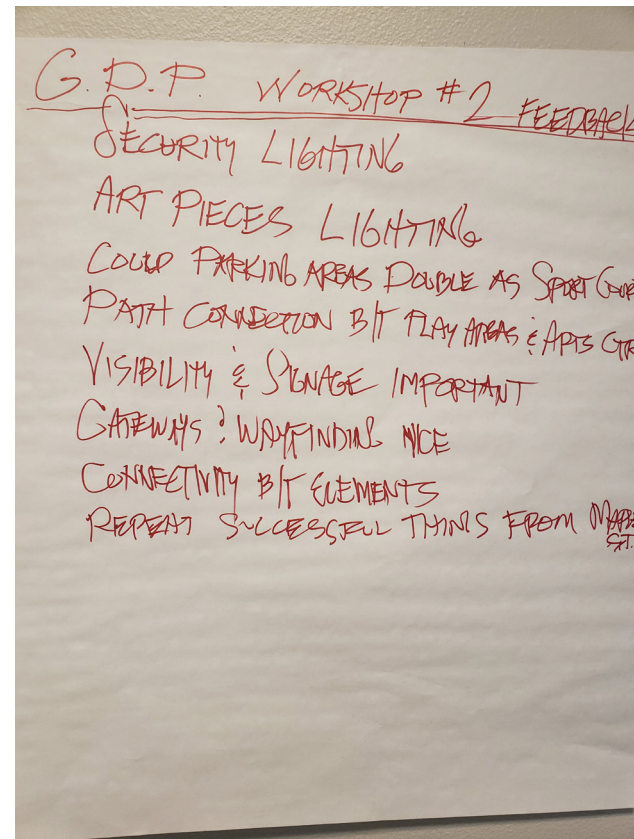 G.D.P. WORKSHOP #2 FEEDBACK
SECURITY LIGHTING
ART PIECES LIGHTING
COULD PARKING AREAS DOUBLE AS SPORT
PATH CONNECTION B/T PLAY AREAS & ARTS CTR
VISIBILITY & SIGNAGE IMPORTANT
GATEWAYS & WAYFINDING NICE
CONNECTIVITY B/T ELEMENTS
REPEAT SUCCESSFUL THINGS FROM
ST.